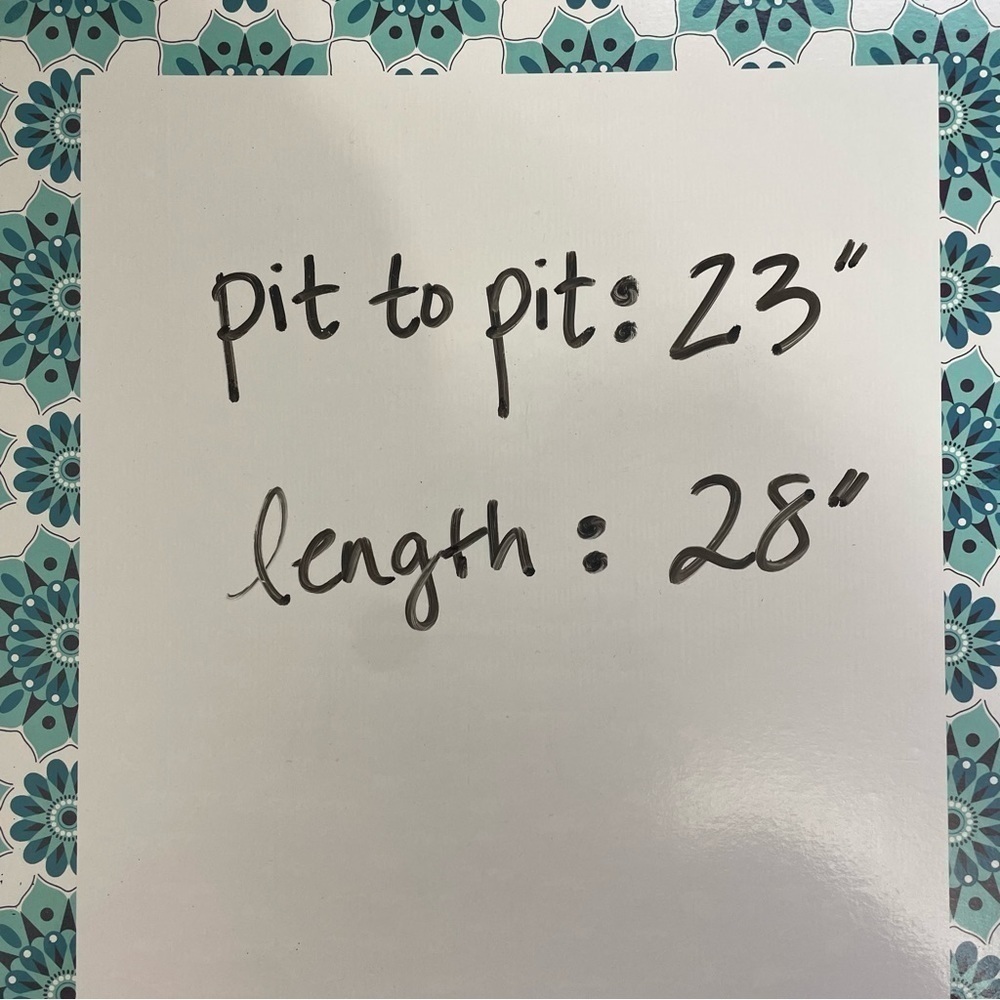 pit to pit: 23"
length: 28"